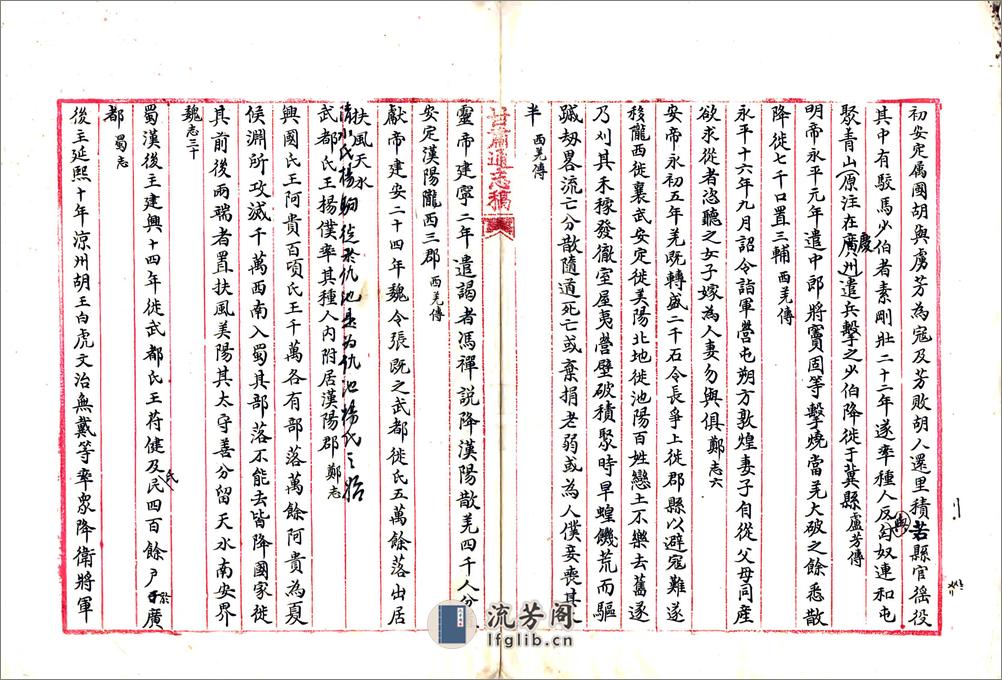 初安定属國胡與虜芳為寇及芳敗胡人還里積苦縣官徭役
其中有駮馬少伯者素剛壯二十二年遂率種人反與匈奴連和屯
聚青山(原注在慶州)遣兵擊之少伯降徙于冀縣盧芳傳
明帝永平元年遣中郎將竇固等擊燒當羌大破之餘悉散
降徙七千口置三輔西羌傳
永平十六年九月詔令詣軍營屯朔方敦煌妻子自從父母同産
欲求從者恣聽之女子嫁為人妻勿與俱鄭志六
安帝永初五年羌既轉盛二千石令長爭上徙郡縣以避寇難遂
移隴西徙襄武安定徙美陽北地徙池陽百姓戀土不樂去舊遂
乃刈其禾稼發徹室屋夷營壁破積聚時旱蝗饑荒而驅
䠞劫畧流亡分散隨道死亡或棄捐老弱或為人僕妾喪其
半西羌傳
甘肅通志稿
靈帝建寧二年遣謁者馮禪說降漢陽散羌四千人分
安定漢陽隴西三郡西羌傳
獻帝建安二十四年魏令張既之武都徙氐五萬餘落出居
扶風天水
清水氐楊駒徙居仇池是為仇池楊氏之始
武都氐王楊僕率其種人内附居漢陽郡鄭志
興國氐王阿貴百頃氐王千萬各有部落萬餘阿貴為夏
侯淵所攻滅千萬西南入蜀其部落不能去皆降國家徙
其前後兩端者置扶風美陽其太守善分留天水南安界
魏志三十
蜀漢後主建興十四年徙武都氐王苻健及氐民四百餘戶於廣
都蜀志
後主延熙十年涼州胡王白虎文治無戴等率衆降衛將軍
流芳阁
lfglib.cn